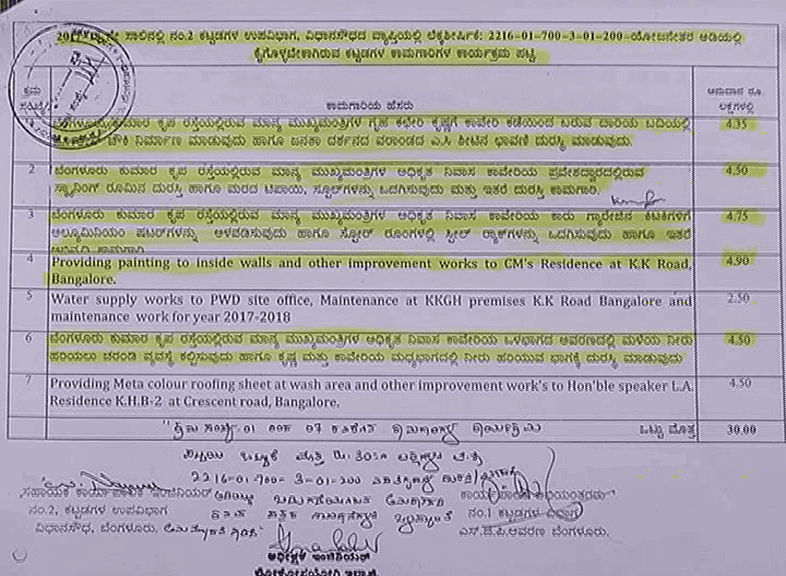 ಸಾಲಿನಲ್ಲಿ ನಂ.2 ಕಟ್ಟಡಗಳ ಉಪವಿಭಾಗ, ವಿಧಾನಸೌಧದ ವ್ಯಾಪ್ತಿಯಲ್ಲಿ ಲೆಕ್ಕಶೀರ್ಷಿಕೆ: 2216-01-700-3-01-200-ಯೋಜನೇತರ ಅಡಿಯಲ್ಲಿ
ಕೈಗೊಳ್ಳಬೇಕಾಗಿರುವ ಕಟ್ಟಡಗಳ ಕಾಮಗಾರಿಗಳ ಕಾರ್ಯಕ್ರಮ ಪಟ್ಟಿ
ಕ್ರಮ ಸಂಖ್ಯೆ ಕಾಮಗಾರಿಯ ಹೆಸರು ಅನುದಾನ ರೂ. ಲಕ್ಷಗಳಲ್ಲಿ
ಬೆಂಗಳೂರು ಕುಮಾರ ಕೃಪ ರಸ್ತೆಯಲ್ಲಿರುವ ಮಾನ್ಯ ಮುಖ್ಯಮಂತ್ರಿಗಳ ಗೃಹ ಕಛೇರಿ ಕೃಷ್ಣಗೆ ಕಾವೇರಿ ಕಡೆಯಿಂದ ಬರುವ ದಾರಿಯ ಬದಿಯಲ್ಲಿ 4.35
ಚೌಕಿ ನಿರ್ಮಾಣ ಮಾಡುವುದು ಹಾಗೂ ಜನತಾ ದರ್ಶನದ ವರಾಂಡದ ಎ.ಸಿ ಶೀಟಿನ ಛಾವಣಿ ದುರಸ್ತಿ ಮಾಡುವುದು.
2 ಬೆಂಗಳೂರು ಕುಮಾರ ಕೃಪ ರಸ್ತೆಯಲ್ಲಿರುವ ಮಾನ್ಯ ಮುಖ್ಯಮಂತ್ರಿಗಳ ಅಧಿಕೃತ ನಿವಾಸ ಕಾವೇರಿಯ ಪ್ರವೇಶದ್ವಾರದಲ್ಲಿರುವ 4.50
ಸ್ಕ್ಯಾನಿಂಗ್ ರೂಮಿನ ದುರಸ್ತಿ ಹಾಗೂ ಮರದ ಟಿಪಾಯಿ, ಸ್ಟೂಲ್‌ಗಳನ್ನು ಒದಗಿಸುವುದು ಮತ್ತು ಇತರೆ ದುರಸ್ತಿ ಕಾಮಗಾರಿ.
3 ಬೆಂಗಳೂರು ಕುಮಾರ ಕೃಪ ರಸ್ತೆಯಲ್ಲಿರುವ ಮಾನ್ಯ ಮುಖ್ಯಮಂತ್ರಿಗಳ ಅಧಿಕೃತ ನಿವಾಸ ಕಾವೇರಿಯ ಕಾರು ಗ್ಯಾರೇಜಿನ ಕಿಟಕಿಗಳಿಗೆ 4.75
ಅಲ್ಯೂಮಿನಿಯಂ ಷಟರ್‌ಗಳನ್ನು ಅಳವಡಿಸುವುದು ಹಾಗೂ ಸ್ಟೋರ್ ರೂಂಗಳಲ್ಲಿ ಸ್ಟೀಲ್ ರ‍್ಯಾಕ್‌ಗಳನ್ನು ಒದಗಿಸುವುದು ಹಾಗೂ ಇತರೆ
ಕಾಮಗಾರಿ
4 Providing painting to inside walls and other improvement works to CM's Residence at K.K Road, 4.90
Bangalore.
5 Water supply works to PWD site office, Maintenance at KKGH premises K.K Road Bangalore and 2.50
maintenance work for year 2017-2018
6 ಬೆಂಗಳೂರು ಕುಮಾರ ಕೃಪ ರಸ್ತೆಯಲ್ಲಿರುವ ಮಾನ್ಯ ಮುಖ್ಯಮಂತ್ರಿಗಳ ಅಧಿಕೃತ ನಿವಾಸ ಕಾವೇರಿಯ ಒಳಭಾಗದ ಆವರಣದಲ್ಲಿ ಮಳೆಯ ನೀರು 4.50
ಹರಿಯಲು ಚರಂಡಿ ವ್ಯವಸ್ಥೆ ಕಲ್ಪಿಸುವುದು ಹಾಗೂ ಕೃಷ್ಣ ಮತ್ತು ಕಾವೇರಿಯ ಮಧ್ಯಭಾಗದಲ್ಲಿ ನೀರು ಹರಿಯುವ ಭಾಗಕ್ಕೆ ದುರಸ್ತಿ ಮಾಡುವುದು
7 Providing Meta colour roofing sheet at wash area and other improvement work's to Hon'ble speaker L.A. 4.50
Residence K.H.B-2 at Crescent road, Bangalore.
ಒಟ್ಟು ಮೊತ್ತ 30.00
2216-01-700-3-01-200
ಸಹಾಯಕ ಕಾರ್ಯಪಾಲಕ ಇಂಜಿನಿಯರ್
ನಂ.2, ಕಟ್ಟಡಗಳ ಉಪವಿಭಾಗ
ವಿಧಾನಸೌಧ, ಬೆಂಗಳೂರು.
ನಂ.1 ಕಟ್ಟಡಗಳ ವಿಭಾಗ
ಎಸ್.ಜೆ.ಪಿ.ಆವರಣ ಬೆಂಗಳೂರು.
ಅಧೀಕ್ಷಕ ಇಂಜಿನಿಯರ್
ಲೋಕೋಪಯೋಗಿ ಇಲಾಖೆ